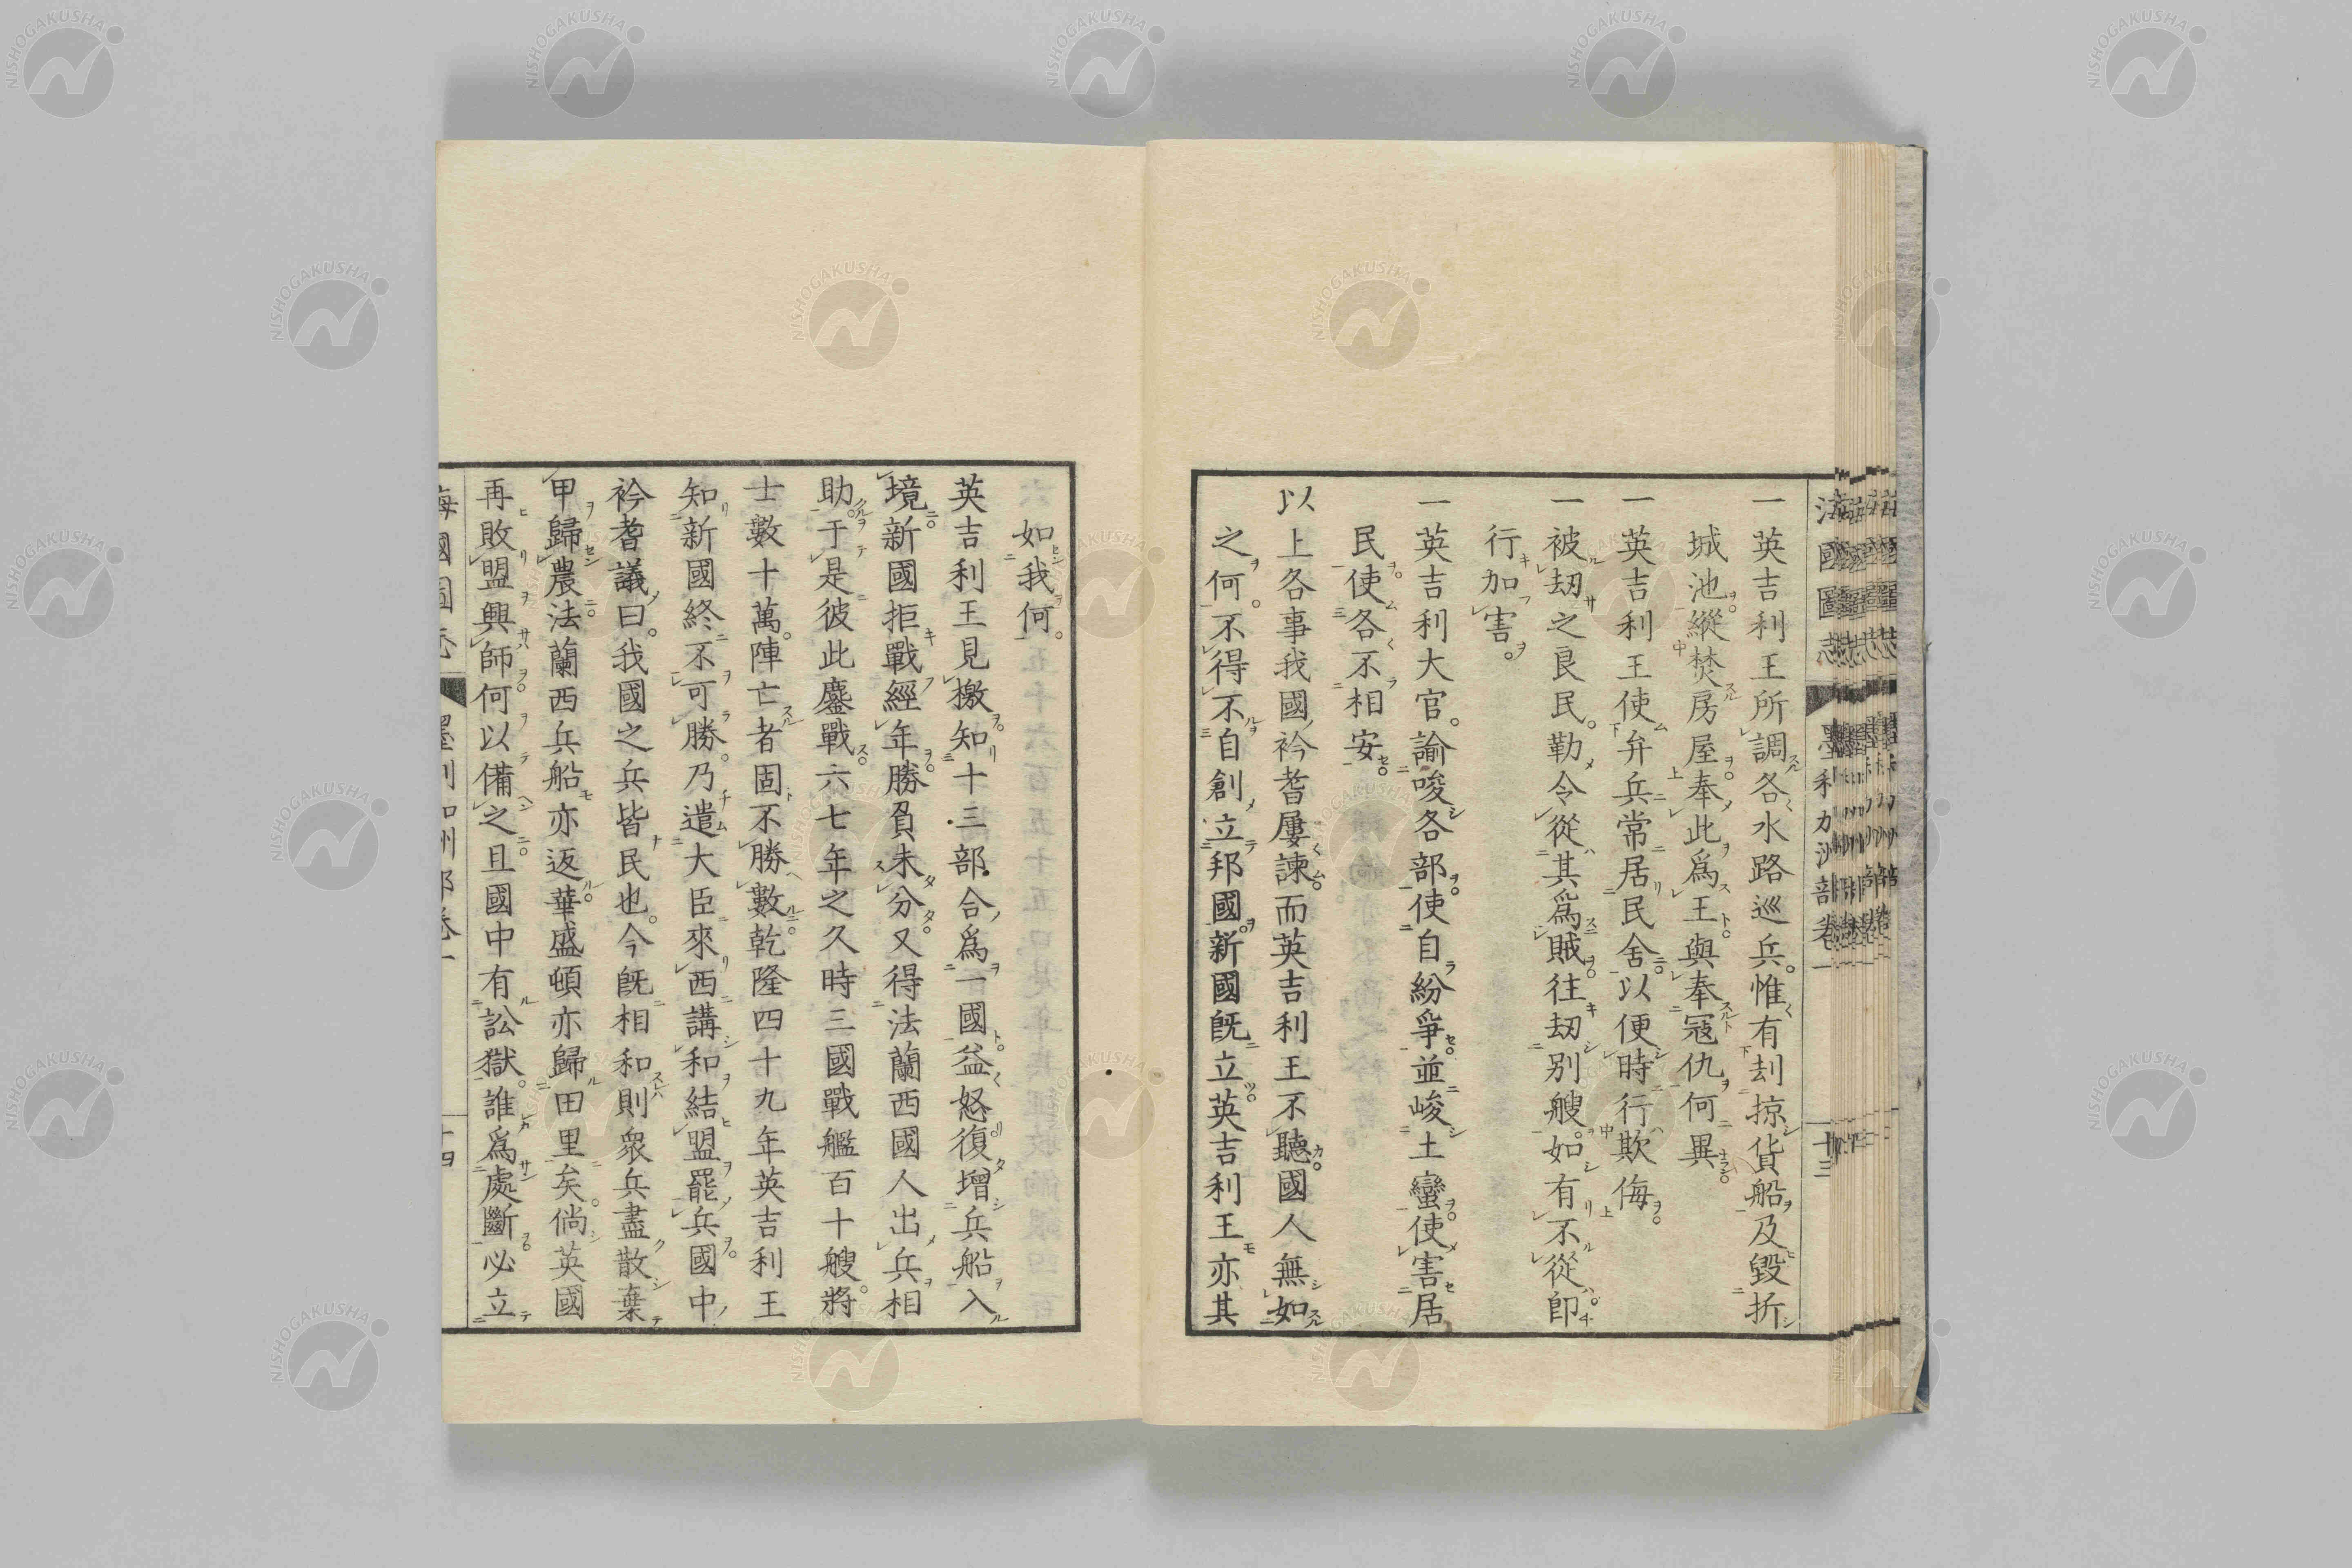 一英吉利王所調各水路巡兵。惟有刦掠貨船及毀折
城池。縱焚房屋。奉此爲王。與奉寇仇何異。
一英吉利王使弁兵常居民舍。以便時行欺侮。
一被刼之良民。勒令從其爲賊。往刼別艘。如有不從。卽
行加害。
一英吉利大官。諭唆各部。使自紛爭。並唆土蠻。使害居
民。使各不相安。
以上各事我國衿耆屢諫。而英吉利王不聽。國人無如
之何。不得不自創立邦國。新國旣立。英吉利王亦其
如我何。
英吉利王見檄。知十三部合爲一國。益怒。復增兵船入
境。新國拒戰經年。勝負未分。又得法蘭西國人出兵相
助。于是彼此鏖戰。六七年之久時三國戰艦百十艘。將
士數十萬。陣亡者固不勝數。乾隆四十九年英吉利王
知新國終不可勝。乃遣大臣來西講和結盟罷兵。國中
衿耆議曰。我國之兵皆民也。今旣相和則衆兵盡散棄
甲歸農。法蘭西兵船亦返。華盛頓亦歸田里矣。倘英國
再敗盟興師。何以備之。且國中有訟獄。誰爲處斷。必立
海國圖志 墨利加洲部卷一 十三
NISHOGAKUSHA